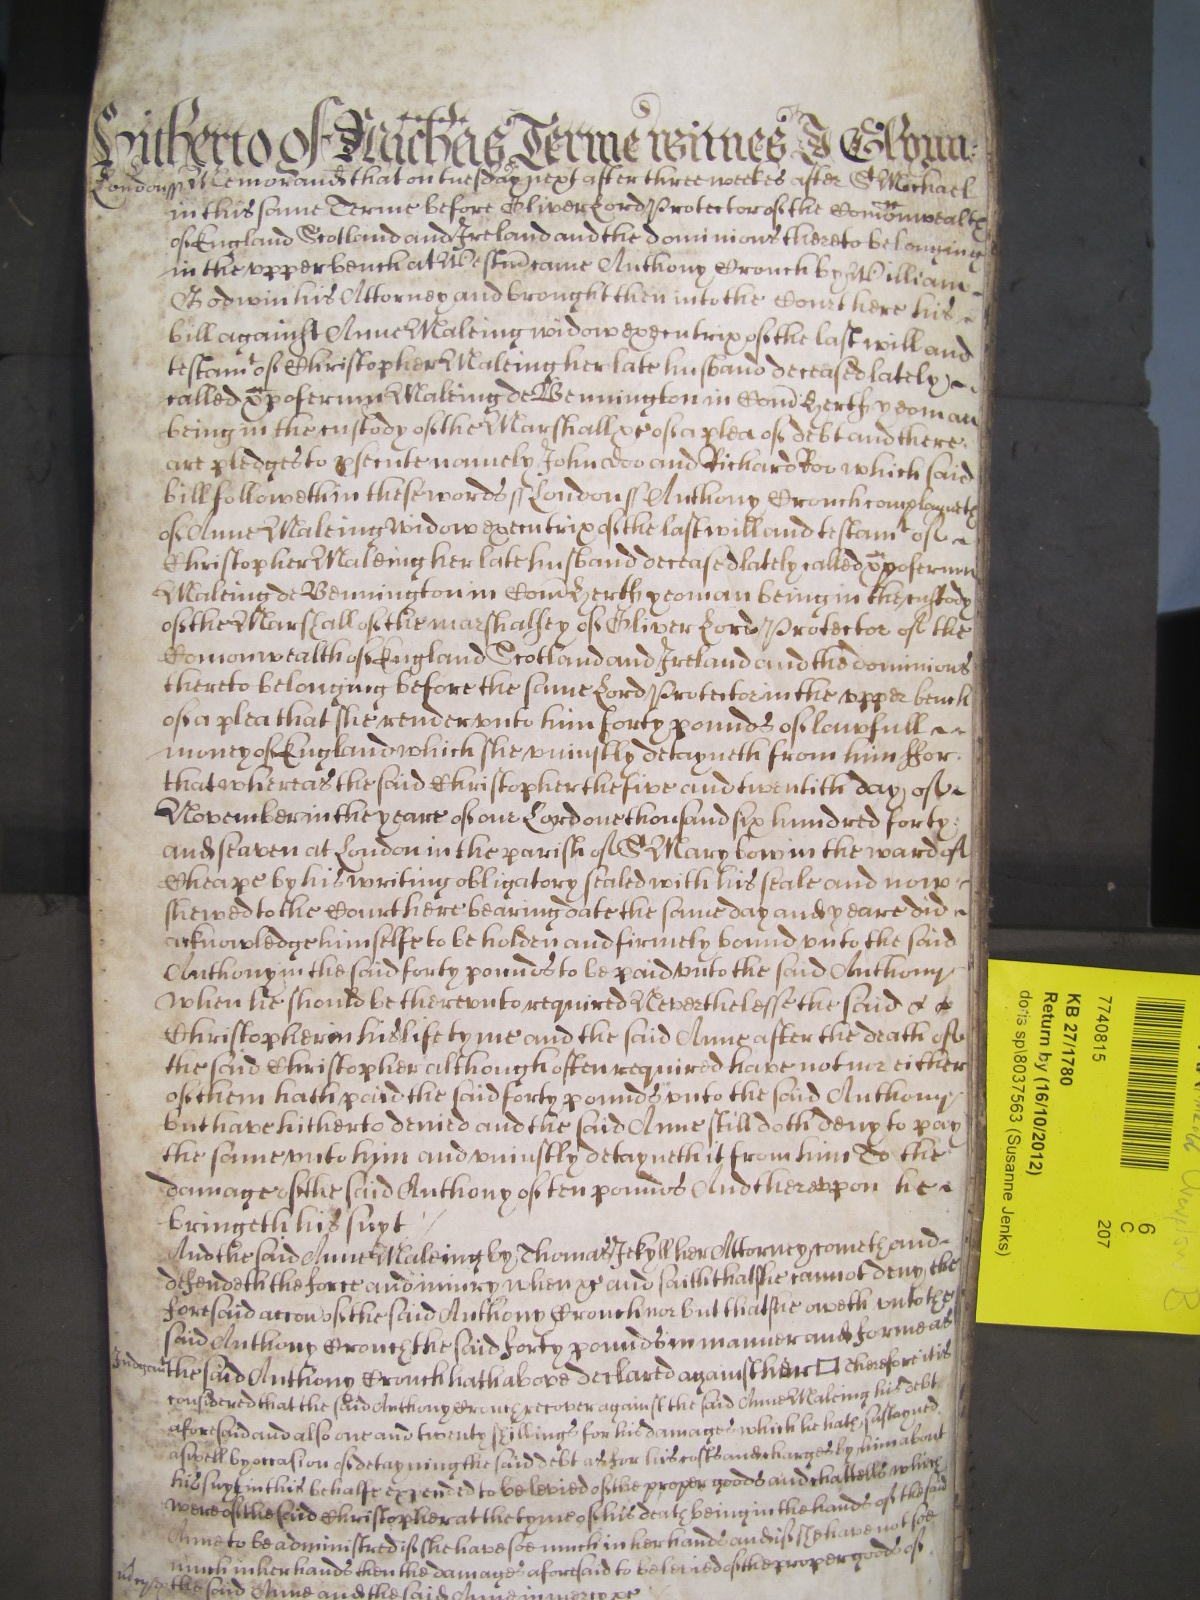 Hitherto of Michās Terme witnes J Glynn:
London ss Memorand that on tuesday next after three weekes after St Michael
in this same Terme before Oliver Lord Protector of the Comonwealth
of England Scotland and Ireland and the dominions thereto belonging
in the vpper bench at Westm came Anthony Crouch by William
Godwin his Attorney and brought then into the Court here his
bill against Anne Maleing widow executrix of the last will and
testamt of Christopher Maleing her late husband deceased lately
called Xpoferum Maleing de Bennington in Com Hertf yeoman
being in the custody of the Marshall &c of a plea of debt and there
are pledges to psecute namely John Doo and Richard Roo which said
bill followeth in these words ss London ss Anthony Crouch complayneth
of Anne Maleing widow executrix of the last will and testamt of
Christopher Maleing her late husband deceased lately called Xpoferum
Maleing de Bennington in Com Hertf yeoman being in the custody
of the Marshall of the marshalsey of Oliver Lord Protector of the
Comonwealth of England Scotland and Ireland and the dominions
thereto belonging before the same Lord Protector in the vpper bench
of a plea that she render vnto him forty pounds of lawfull
money of England which she vniustly detayneth from him ffor
that whereas the said Christopher the five and twentith day of
November in the yeare of our Lord one thousand six hundred forty
and seaven at London in the parish of St Mary bow in the ward of
Cheape by his writing obligatory sealed with his seale and now
shewed to the Court here bearing date the same day and yeare did
acknowledge himselfe to be holden and firmely bound vnto the said
Anthony in the said forty pounds to be paid vnto the said Anthony
when he should be therevnto required Neverthelesse the said
Christopher in his life tyme and the said Anne after the death of
the said Christopher although often required have not nor either
of them hath paid the said forty pounds vnto the said Anthony
but have hitherto denied and the said Anne still doth deny to pay
the same vnto him and vniustly detayneth it from him To the
damage of the said Anthony of ten pounds And therevpon he
bringeth his suyt
And the said Anne Maleing by Thomas Jekyll her Attorney cometh and
defendeth the force and iniury when &c and saith that she cannot deny the
foresaid accon of the said Anthony Crouch nor but that she oweth vnto the
said Anthony Crouch the said forty pounds in manner and forme as
the said Anthony Crouch hath above declared against her Therefore it is
Judgem
considered that the said Anthony Crouch recover against the said Anne Maleing his debt
aforesaid and also one and twenty shillings for his damages which he hath susteyned
aswell by occasion of detayning the said debt as for his costs and charges by him about
his suyt in this behalfe expended to be levied of the proper goods and chattells which
were of the said Christopher at the tyme of his death being in the hands of the said
Anne to be administred if she have soe much in her hands and if she have not soe
much in her hands then the damages aforesaid to be levied of the proper goods of
the said Anne and the said Anne in mercy &c
7740815
KB 27/1780
Return by (16/10/2012)
doris sp\8037563 (Susanne Jenks)
6
C
207